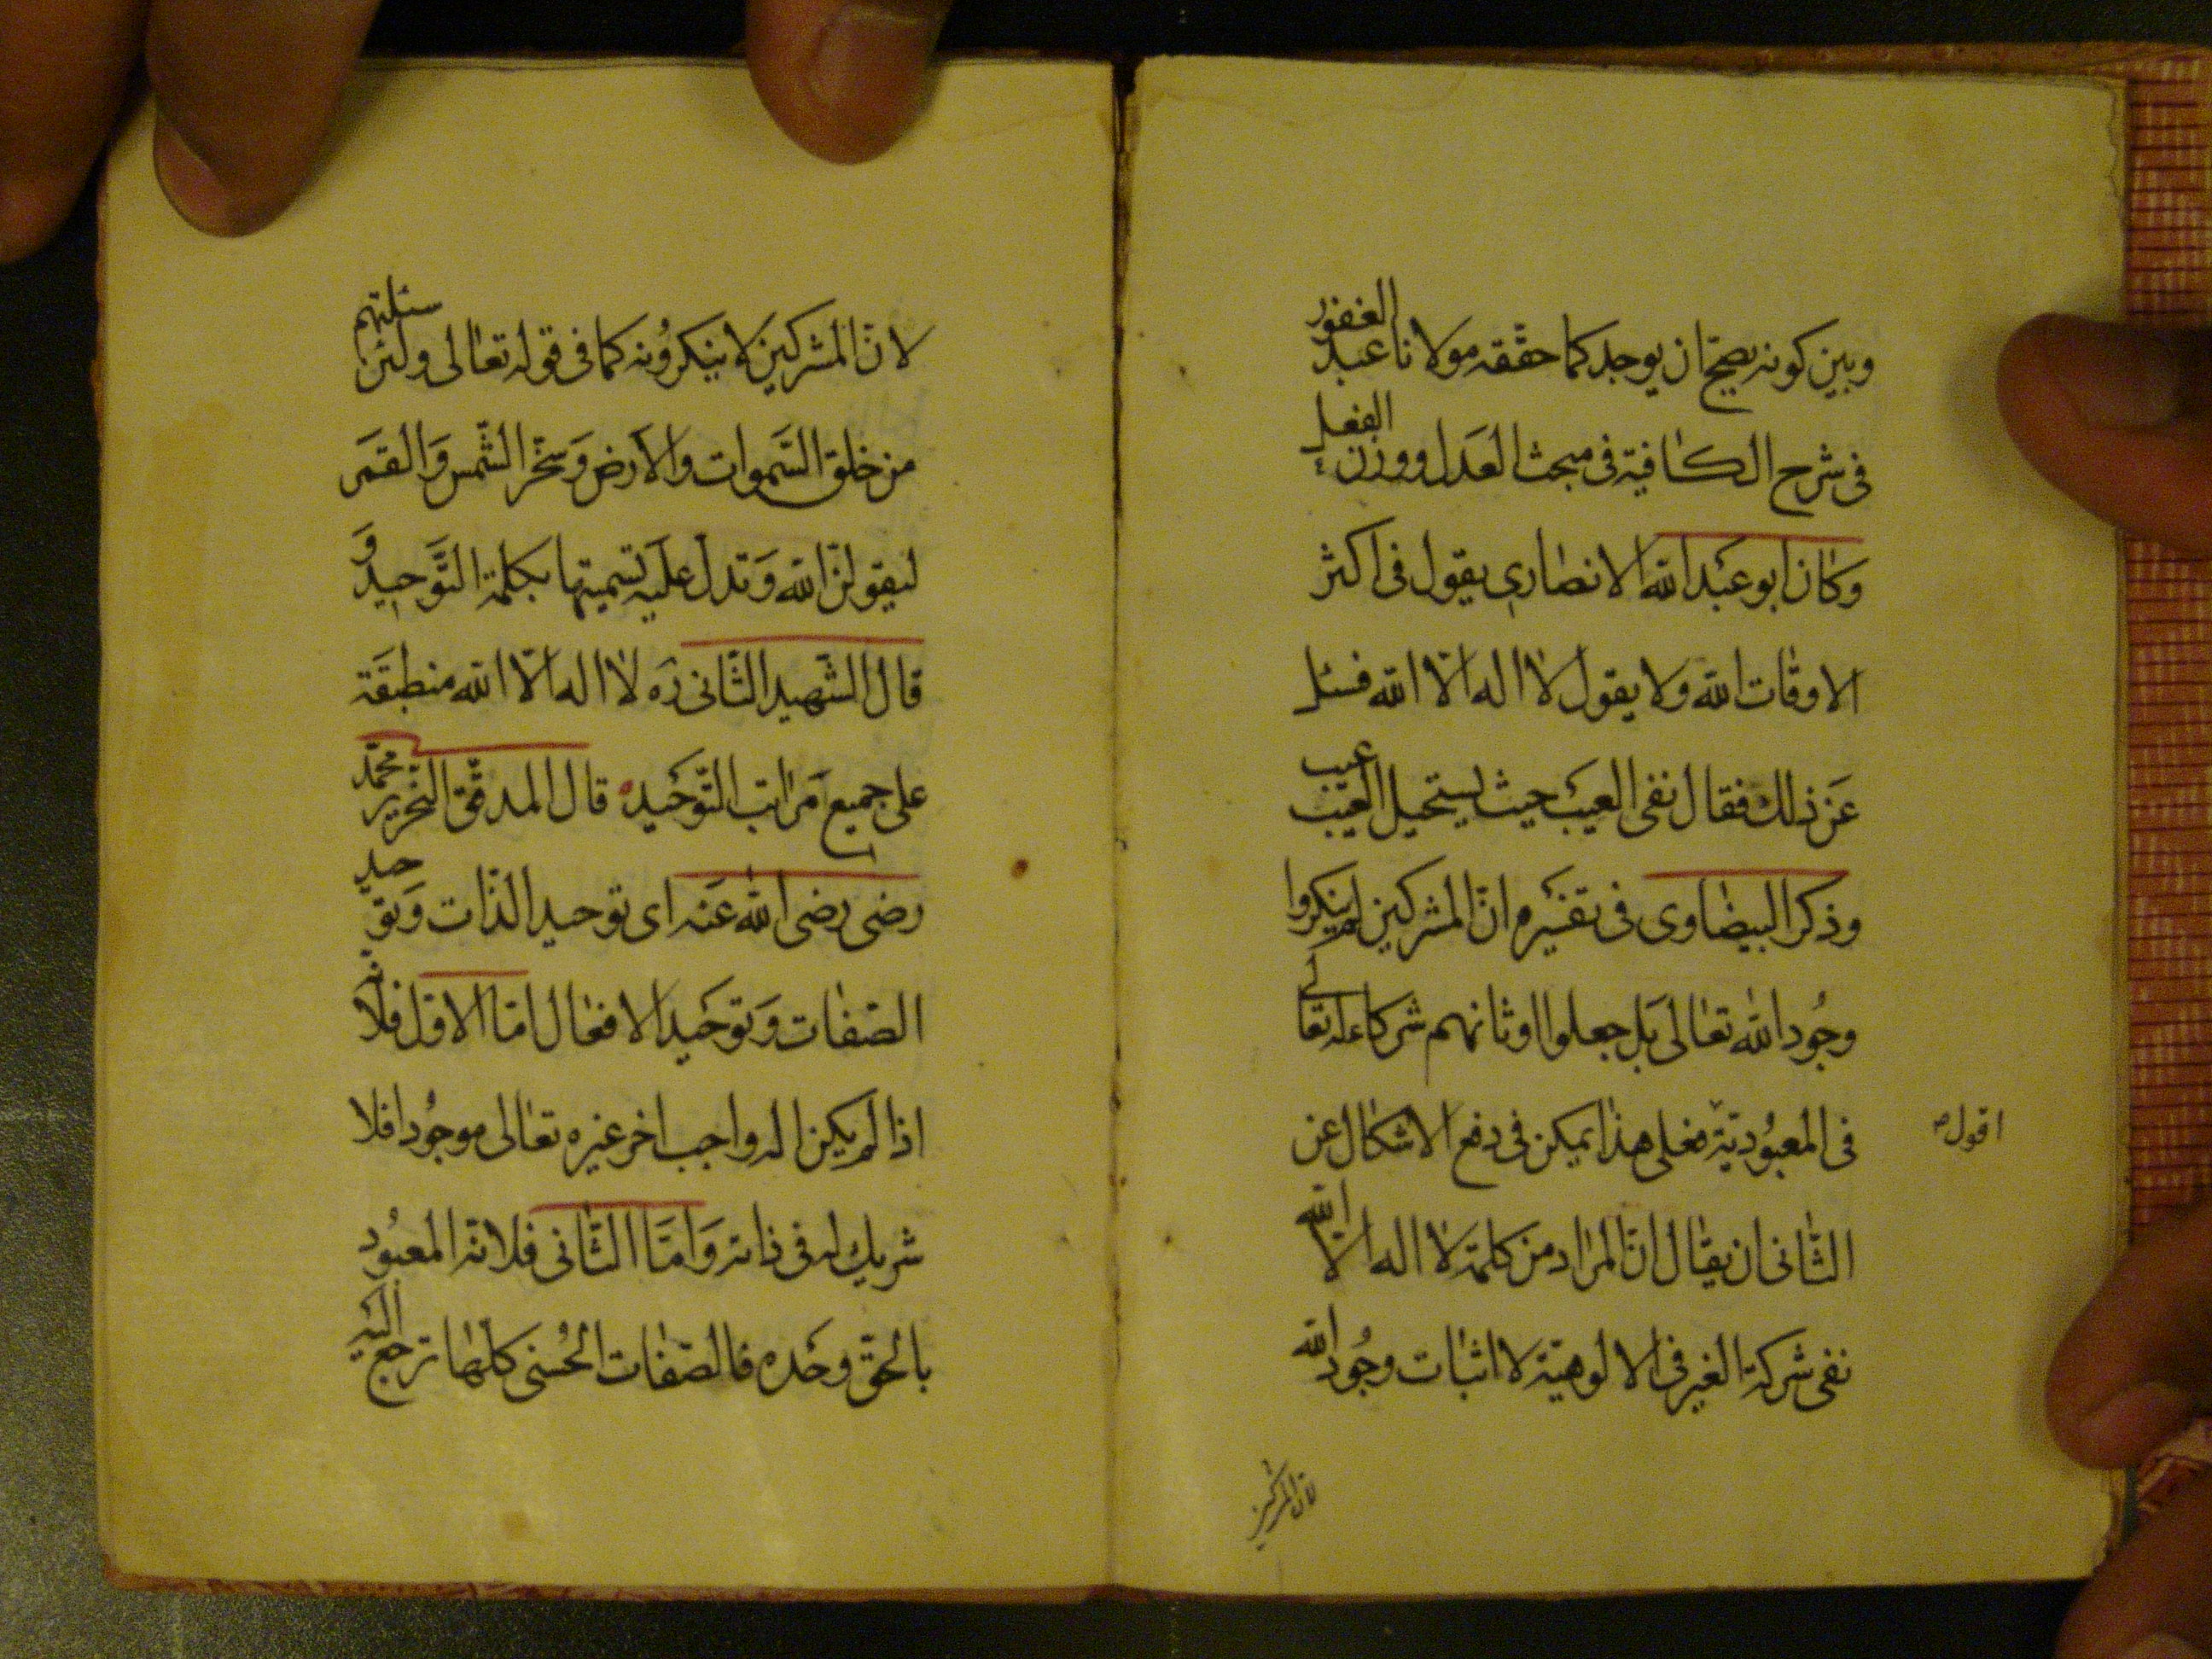 وبين كونه يصحّ ان يوجد كما حقّقه مولانا عبد الغفور
فى شرح الكافية فى مبحث العدل ووزن الفعل
وكان ابو عبد الله الانصارى يقول فى اكثر
الاوقات الله ولا يقول لا اله الّا الله فسئل
عن ذلك فقال نفى العيب حيث يستحيل العيب عيب
وذكر البيضاوى فى تفسيره انّ المشركين لم ينكروا
وجود الله تعالى بل جعلوا اوثانهم شركا له تعالى
فى المعبوديّة فعلى هذا يمكن فى دفع الاشكال عن
اقول
الثّانى ان يقال انّ المراد من كلمة لا اله الّا الله
نفى شركة الغير فى الالوهيّة لا اثبات وجود الله
لان المشركين
لانّ المشركين لا ينكرونه كما فى قوله تعالى ولئن سئلتهم
من خلق السّموات والارض وسخّر الشّمس والقمر
ليقولنّ الله وتدل عليه تسميتها بكلمة التّوحيد و
قال الشّهيد الثّانى ره لا اله الّا الله منطبقة
على جميع مراتب التّوحيد قال المدقّق النّحرير محمّد
رضى رضى الله عنه اى توحيد الذّات وتوحيد
الصّفات وتوحيد الافعال امّا الاوّل فلانّه
اذا لم يكن اله واجب اخر غيره تعالى موجودا فلا
شريك له فى ذاته وامّا الثّانى فلانّه المعبود
بالحقّ وحده فالصّفات الحسنى كلّها ترجع اليه